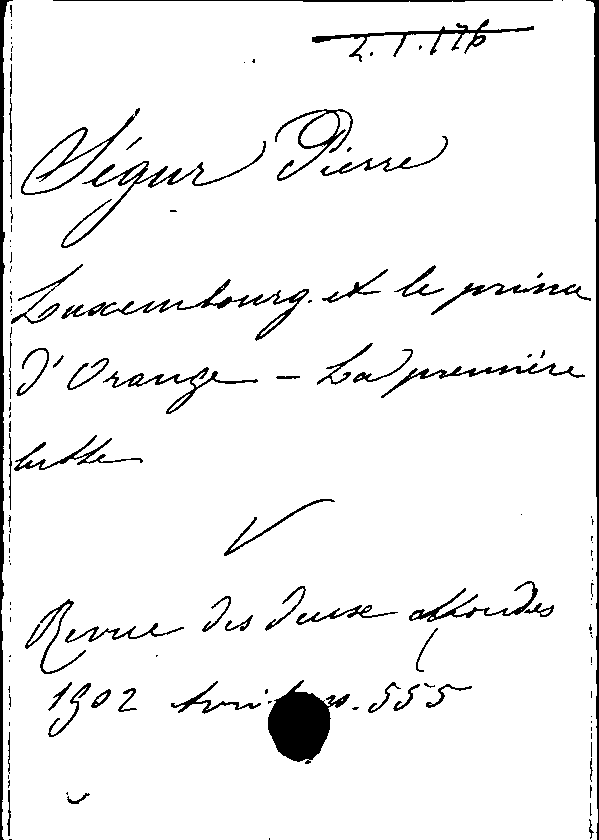 2.1.176
Ségur Pierre
Luxembourg et le prince
d'Orange - La première
lutte
Revue des deux Mondes
1902 Avril p. 555